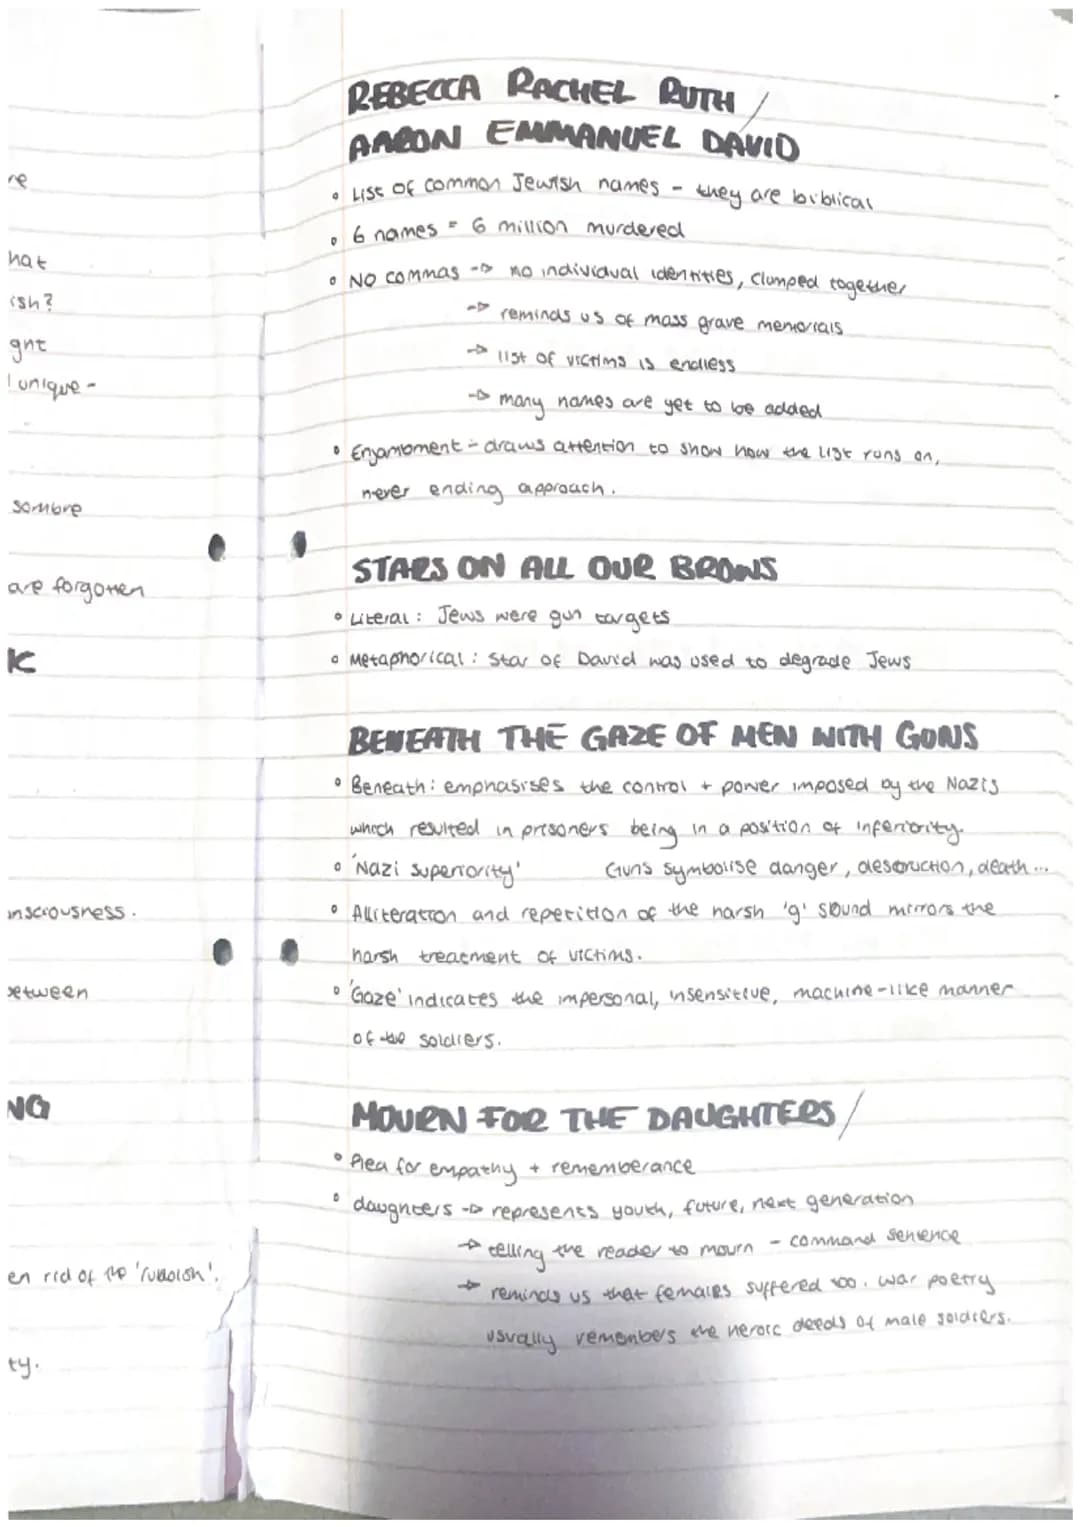 re
hat
ish?
ght
unique -
sombre
are forgotten
K
onsciousness.
between
NG
en rid of the 'rubbish'.
ty.
REBECCA RACHEL RUTH /
AARON EMMANUEL DAVID
• List of common Jewish names - they are biblical
• 6 names = 6 million murdered
• NO commas -> no individual identities, clumped together
-> reminds us of mass grave memorials
-> list of victims is endless
-> many names are yet to be added
• Enjambment - draws attention to show how the list runs on,
never ending approach.
STARS ON ALL OUR BROWS
• Literal: Jews were gun targets
• Metaphorical: Star of David was used to degrade Jews
BENEATH THE GAZE OF MEN WITH GUNS
• Beneath: emphasises the control + power imposed by the Nazis
which resulted in prisoners being in a position of inferiority.
• 'Nazi superiority' Guns symbolise danger, destruction, death...
• Alliteration and repetition of the harsh 'g' sound mirrors the
harsh treatment of victims.
• 'Gaze' indicates the impersonal, insensitive, machine-like manner
of the soldiers.
MOURN FOR THE DAUGHTERS /
• Plea for empathy + rememberance
• daughters -> represents youth, future, next generation
-> telling the reader to mourn - command sentence
-> reminds us that females suffered too. war poetry
usually remembers the heroic deeds of male soldiers.